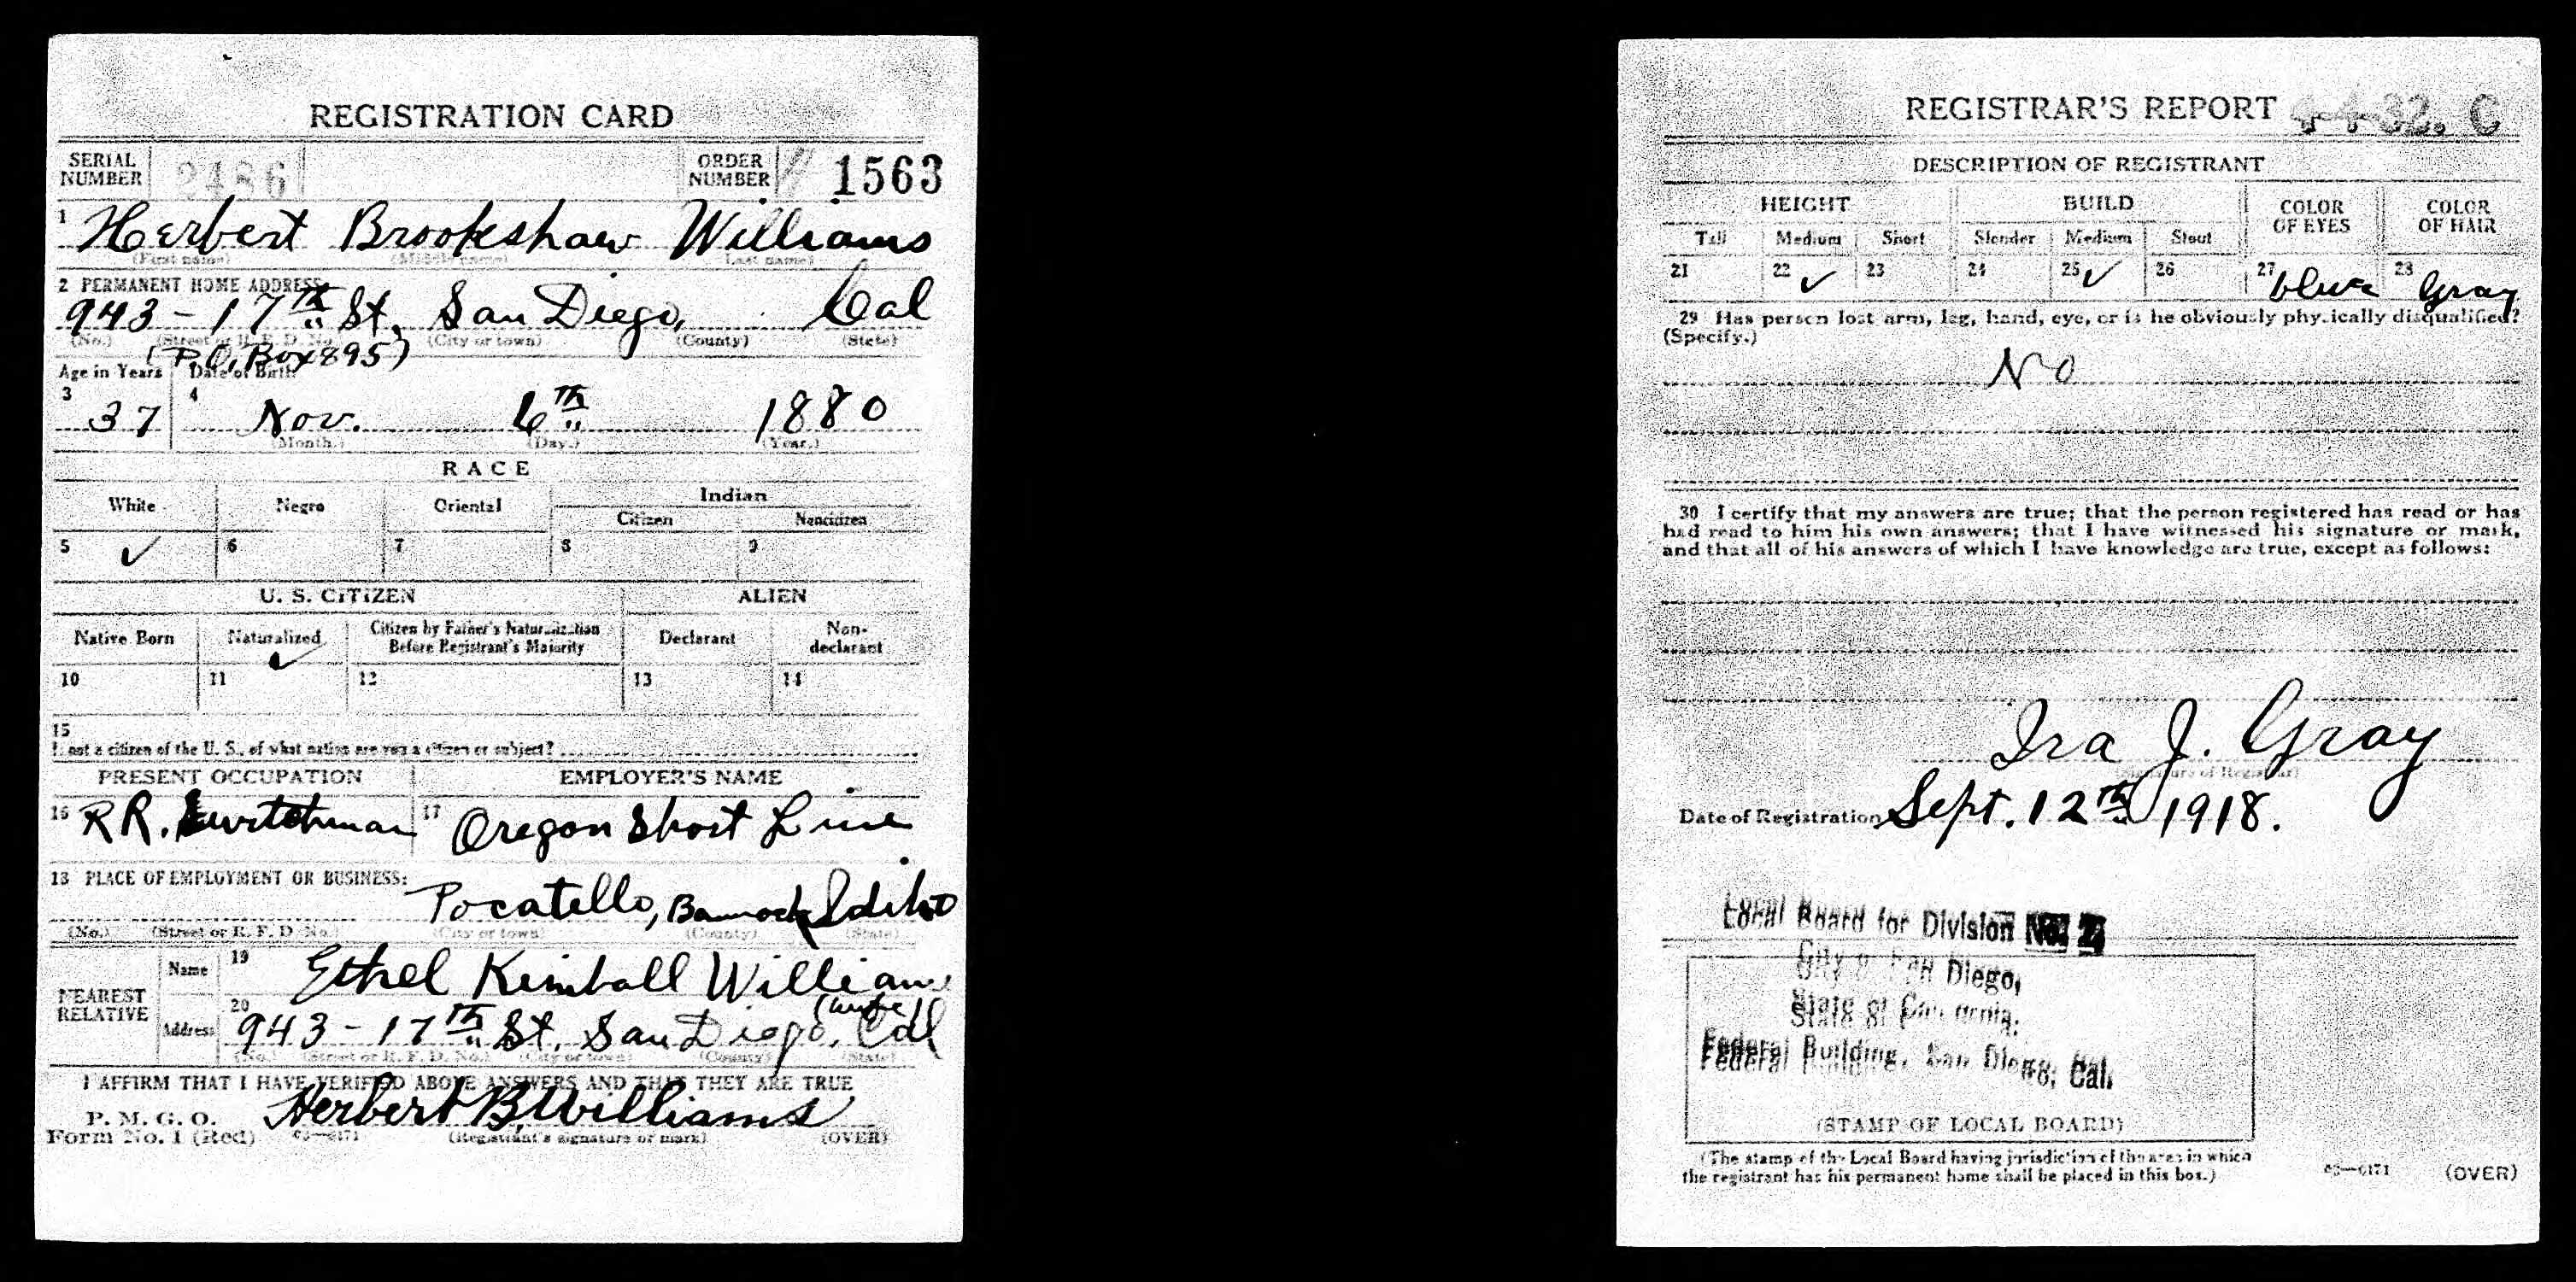 REGISTRATION CARD
SERIAL NUMBER 2486 ORDER NUMBER 1563
1 Herbert Brookshaw Williams
(First name) (Middle name) Last name)
2 PERMANENT HOME ADDRESS:
943 - 17th St, San Diego, Cal
(No.) (Street or R. F. D. No.) (City or town) (County) (State)
(P.O. Box 895)
Age in Years Date of Birth
3 37 4 Nov. 6th 1880
(Month.) (Day.) (Year.)
RACE
White Negro Oriental Indian
Citizen Noncitizen
5 ✓ 6 7 8 9
U. S. CITIZEN ALIEN
Native Born Naturalized Citizen by Father's Naturalization Before Registrant's Majority Declarant Non-declarant
✓
10 11 12 13 14
15
If not a citizen of the U. S., of what nation are you a citizen or subject?
PRESENT OCCUPATION EMPLOYER'S NAME
16 RR. Switchman 17 Oregon Short Line
18 PLACE OF EMPLOYMENT OR BUSINESS:
Pocatello, Bannock Idaho
(No.) (Street or R. F. D. No.) (City or town) (County) (State)
NEAREST RELATIVE
Name 19 Ethel Kimball Williams
(wife)
Address 20 943 - 17th St. San Diego, Cal
(No.) (Street or R. F. D. No.) (City or town) (County) (State)
I AFFIRM THAT I HAVE VERIFIED ABOVE ANSWERS AND THAT THEY ARE TRUE
P. M. G. O.
Form No. 1 (Red) 03—6171 Herbert B. Williams
(Registrant's signature or mark) (OVER)
REGISTRAR'S REPORT 4-4-32. C
DESCRIPTION OF REGISTRANT
HEIGHT BUILD COLOR OF EYES COLOR OF HAIR
Tall Medium Short Slender Medium Stout
21 22 ✓ 23 24 25 ✓ 26 27 blue 28 Gray
29 Has person lost arm, leg, hand, eye, or is he obviously physically disqualified?
(Specify.)
No
30 I certify that my answers are true; that the person registered has read or has
had read to him his own answers; that I have witnessed his signature or mark,
and that all of his answers of which I have knowledge are true, except as follows:
Ira J. Gray
(Signature of Registrar)
Date of Registration Sept. 12th 1918.
Local Board for Division No. 2
City of San Diego,
State of California.
Federal Building, San Diego, Cal.
(STAMP OF LOCAL BOARD)
(The stamp of the Local Board having jurisdiction of the area in which
the registrant has his permanent home shall be placed in this box.)
03—6171 (OVER)